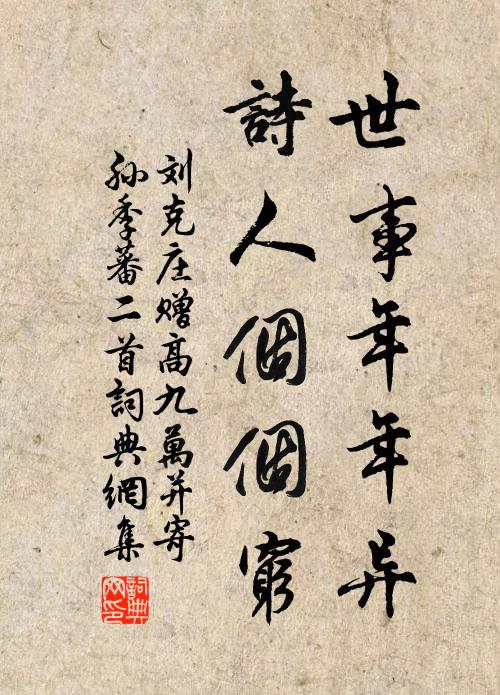 世事年年异
詩人個個窮
刘克庄赠高九萬并寄
孙季蕃二首詞典網集
詞典
网印